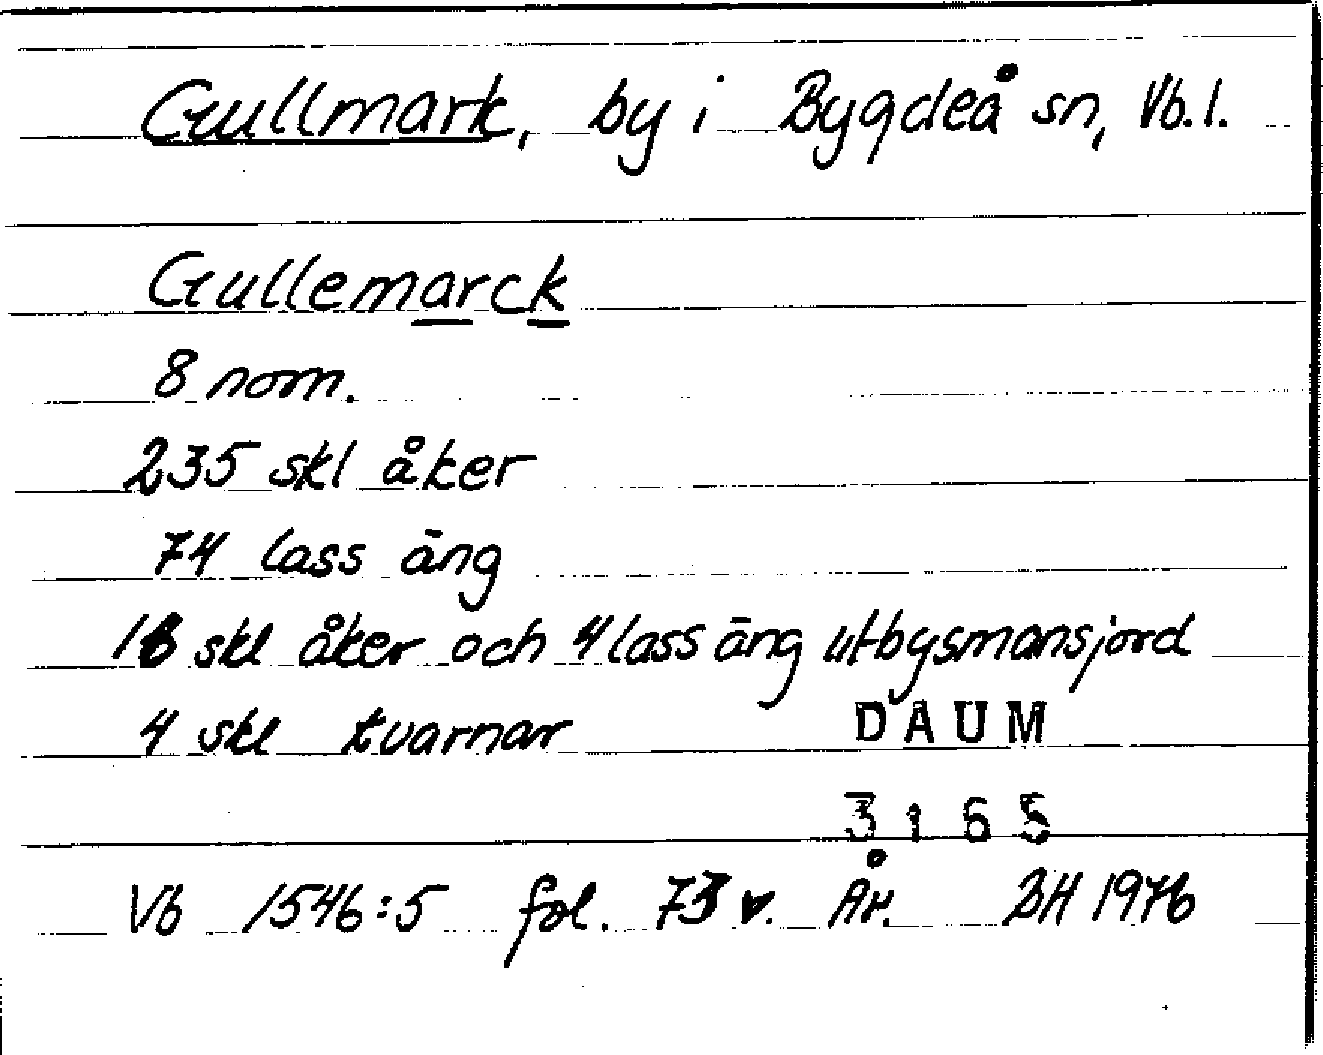 Gullmark, by i Bygdeå sn, Vb.l.
Gullemarck
8 nom.
235 skl åker
74 lass äng
16 skl åker och 4 lass äng utbysmansjord
4 skl kvarnar
DAUM
3165
Vb 1546:5 fol. 73 v. År. BH 1976